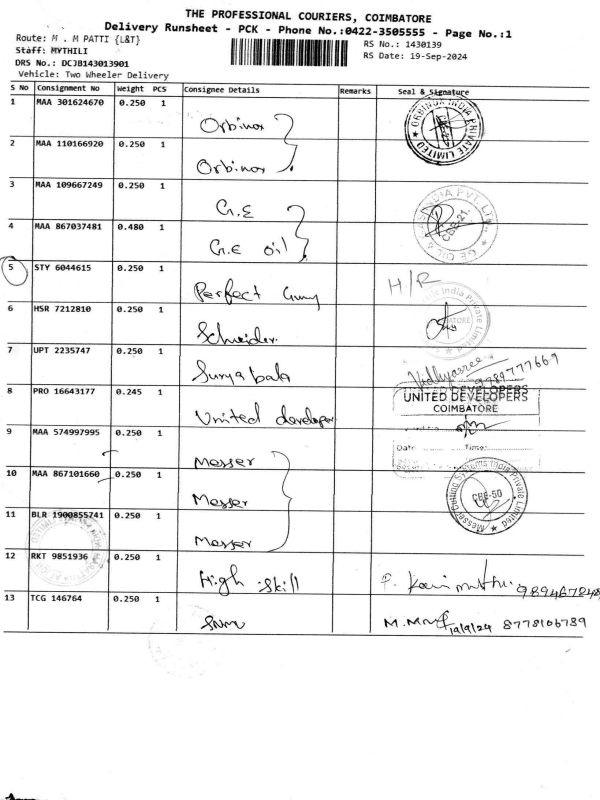 THE PROFESSIONAL COURIERS, COIMBATORE
Delivery Runsheet - PCK - Phone No.:0422-3505555 - Page No.:1
Route: M . M PATTI {L&T}
RS No.: 1430139
Staff: MYTHILI
RS Date: 19-Sep-2024
DRS No.: DCJB143013901
Vehicle: Two Wheeler Delivery
S No Consignment No Weight PCS Consignee Details Remarks Seal & Signature
1 MAA 301624670 0.250 1 Orbinox
ORBINOX INDIA PRIVATE LIMITED
2 MAA 110166920 0.250 1 Orbinox
3 MAA 109667249 0.250 1 G.E
4 MAA 867037481 0.480 1 G.E oil
CBE-21.
5 STY 6044615 0.250 1 Perfect Guny H/R
6 HSR 7212810 0.250 1 Schneider
India Private Limited
7 UPT 2235747 0.250 1 Suryabala Vidhyasree 9789777669
8 PRO 16643177 0.245 1 United developer
UNITED DEVELOPERS
COIMBATORE
Date: Time:
9 MAA 574997995 0.250 1 Messer
10 MAA 867101660 0.250 1 Messer
Messer Cutting Systems India Private Limited
CBE-50
11 BLR 1900855741 0.250 1 Messer
12 RKT 9851936 0.250 1 High skill
13 TCG 146764 0.250 1 SNM 19/9/24 8778106789